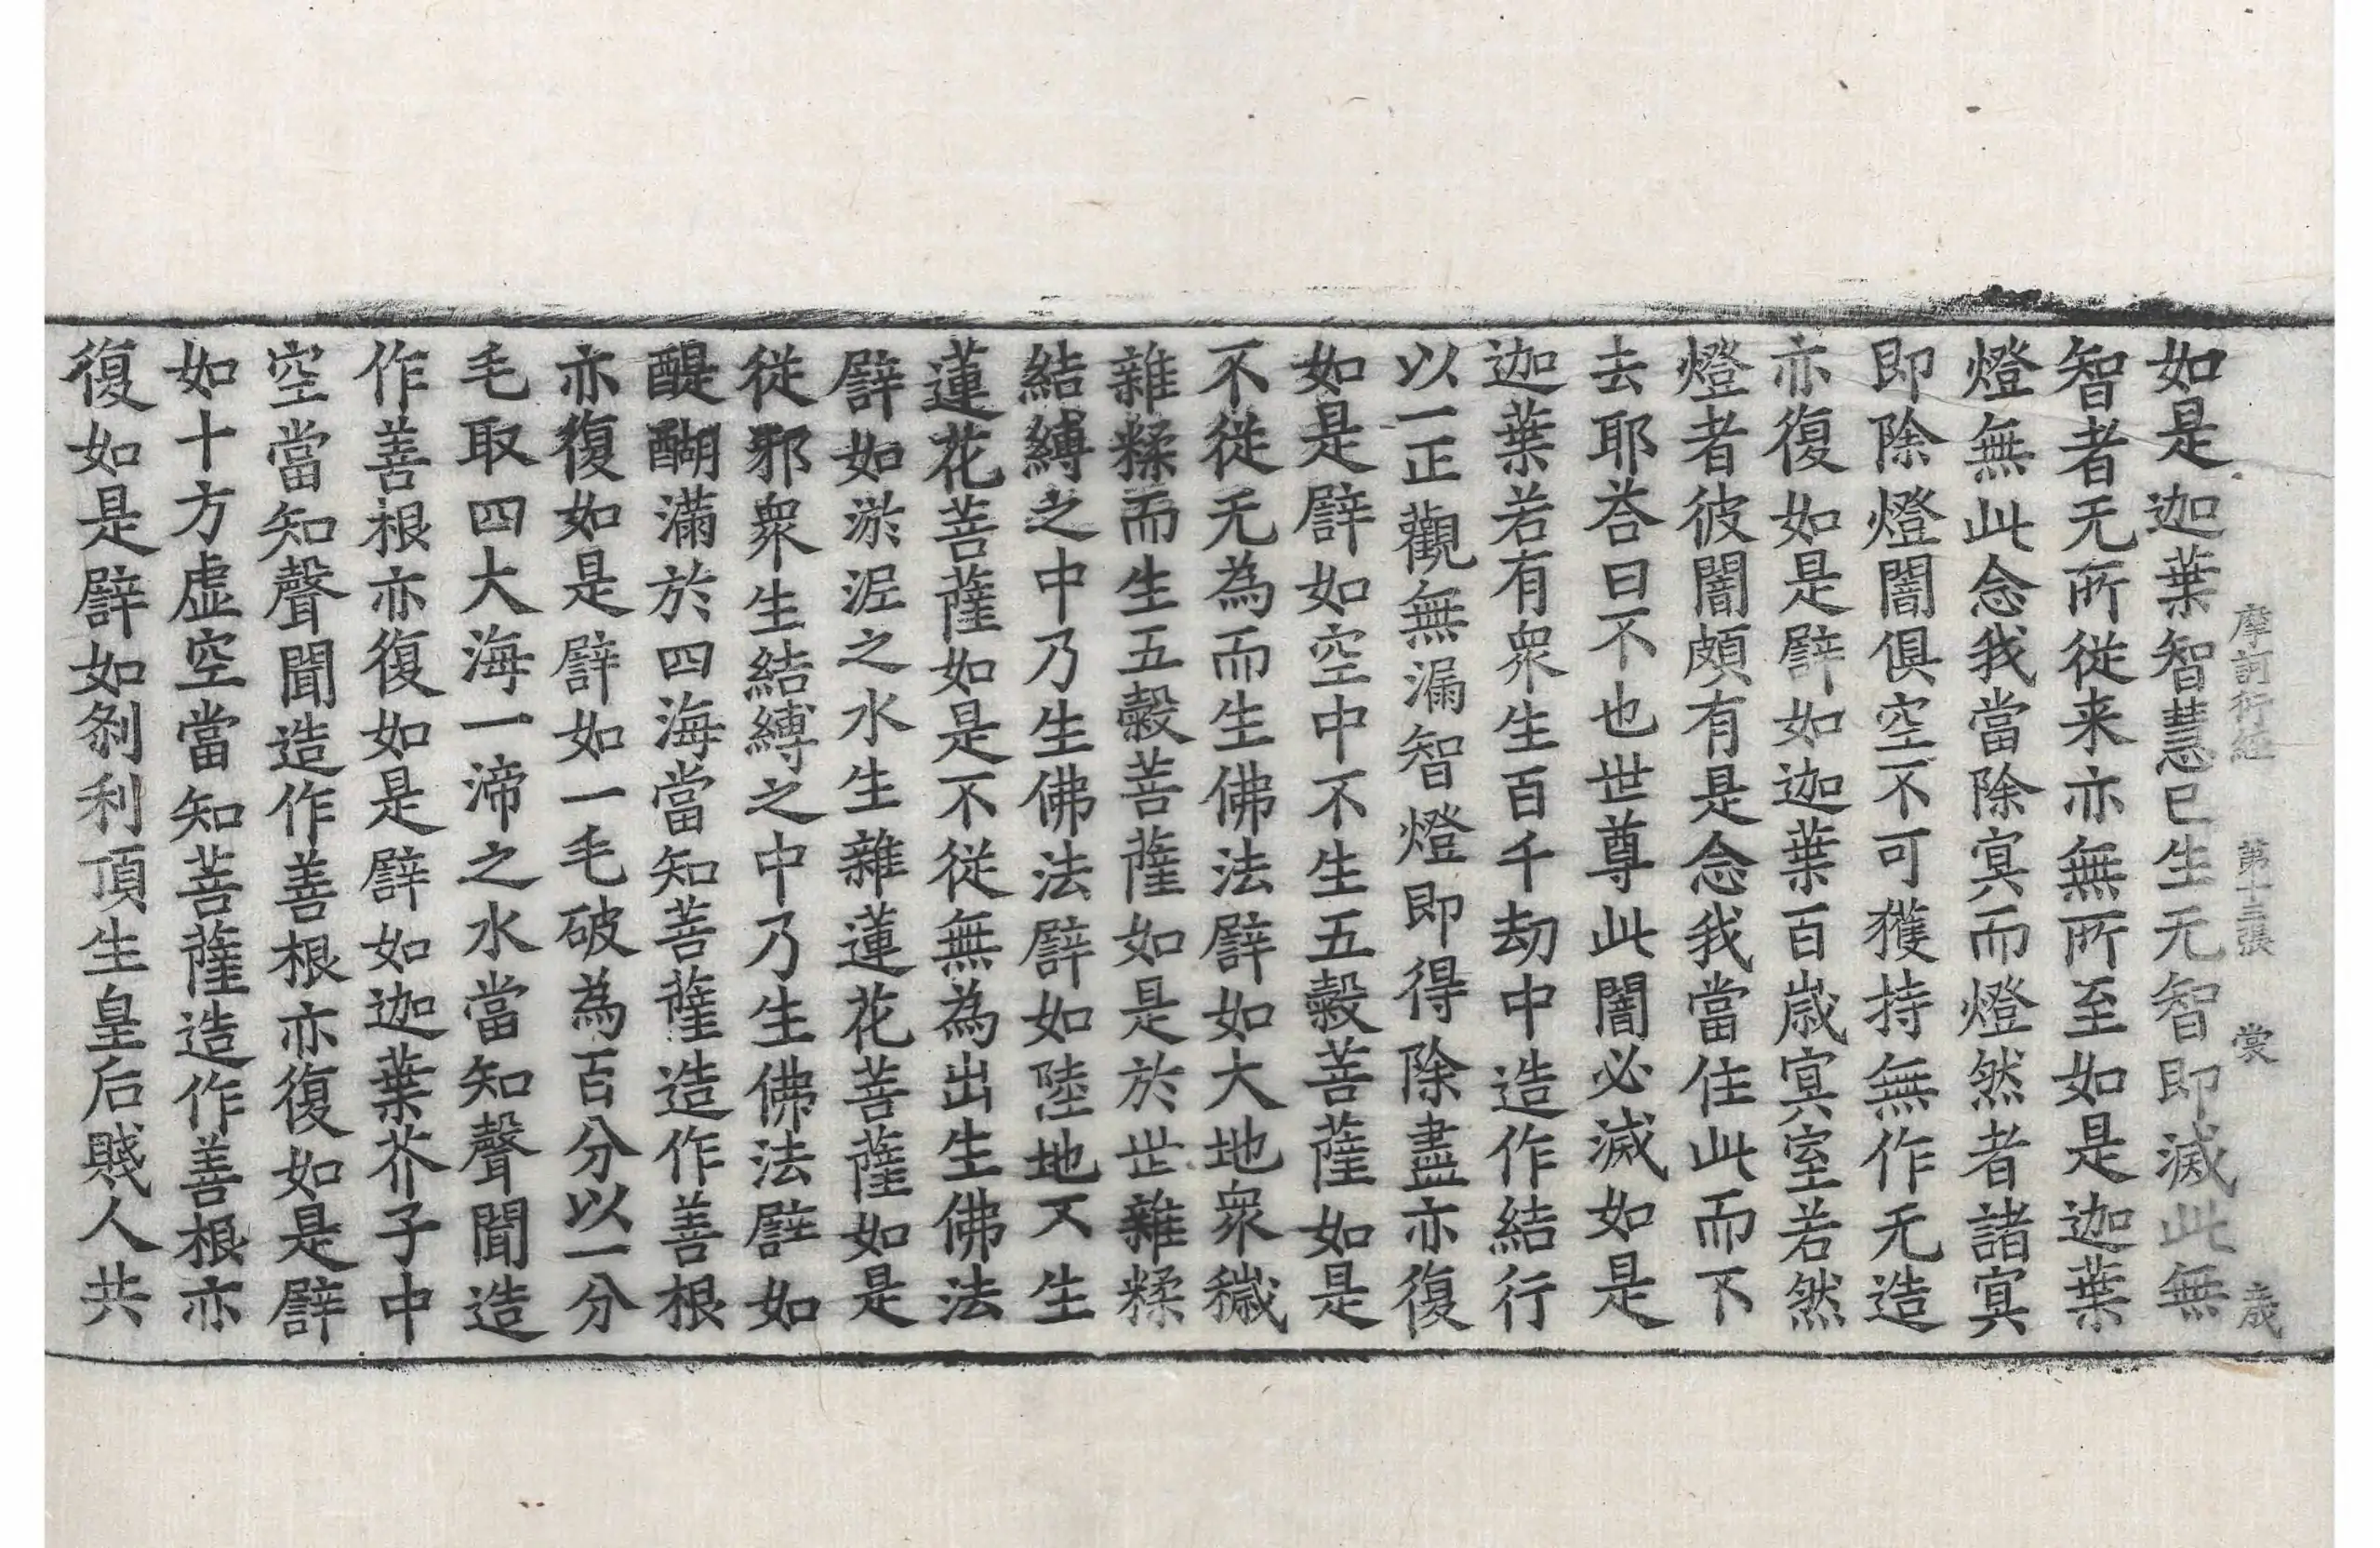 摩訶衍經 第十三張 裳 歳
如是迦葉智慧已生无智即滅此無
智者无所從来亦無所至如是迦葉
燈無此念我當除㝠而燈然者諸㝠
即除燈闇俱空不可獲持無作无造
亦復如是譬如迦葉百歳㝠室若然
燈者彼闇頗有是念我當住此而不
去耶荅曰不也世尊此闇必滅如是
迦葉若有衆生百千劫中造作結行
以一正觀無漏智燈即得除盡亦復
如是譬如空中不生五穀菩薩如是
不從无為而生佛法譬如大地衆穢
雜糅而生五穀菩薩如是於世雜糅
結縛之中乃生佛法譬如陸地不生
蓮花菩薩如是不從無為出生佛法
譬如淤泥之水生雜蓮花菩薩如是
從邪衆生結縛之中乃生佛法譬如
醍醐滿於四海當知菩薩造作善根
亦復如是譬如一毛破為百分以一分
毛取四大海一渧之水當知聲聞造
作善根亦復如是譬如迦葉芥子中
空當知聲聞造作善根亦復如是譬
如十方虛空當知菩薩造作善根亦
復如是譬如刹利頂生皇后賤人共